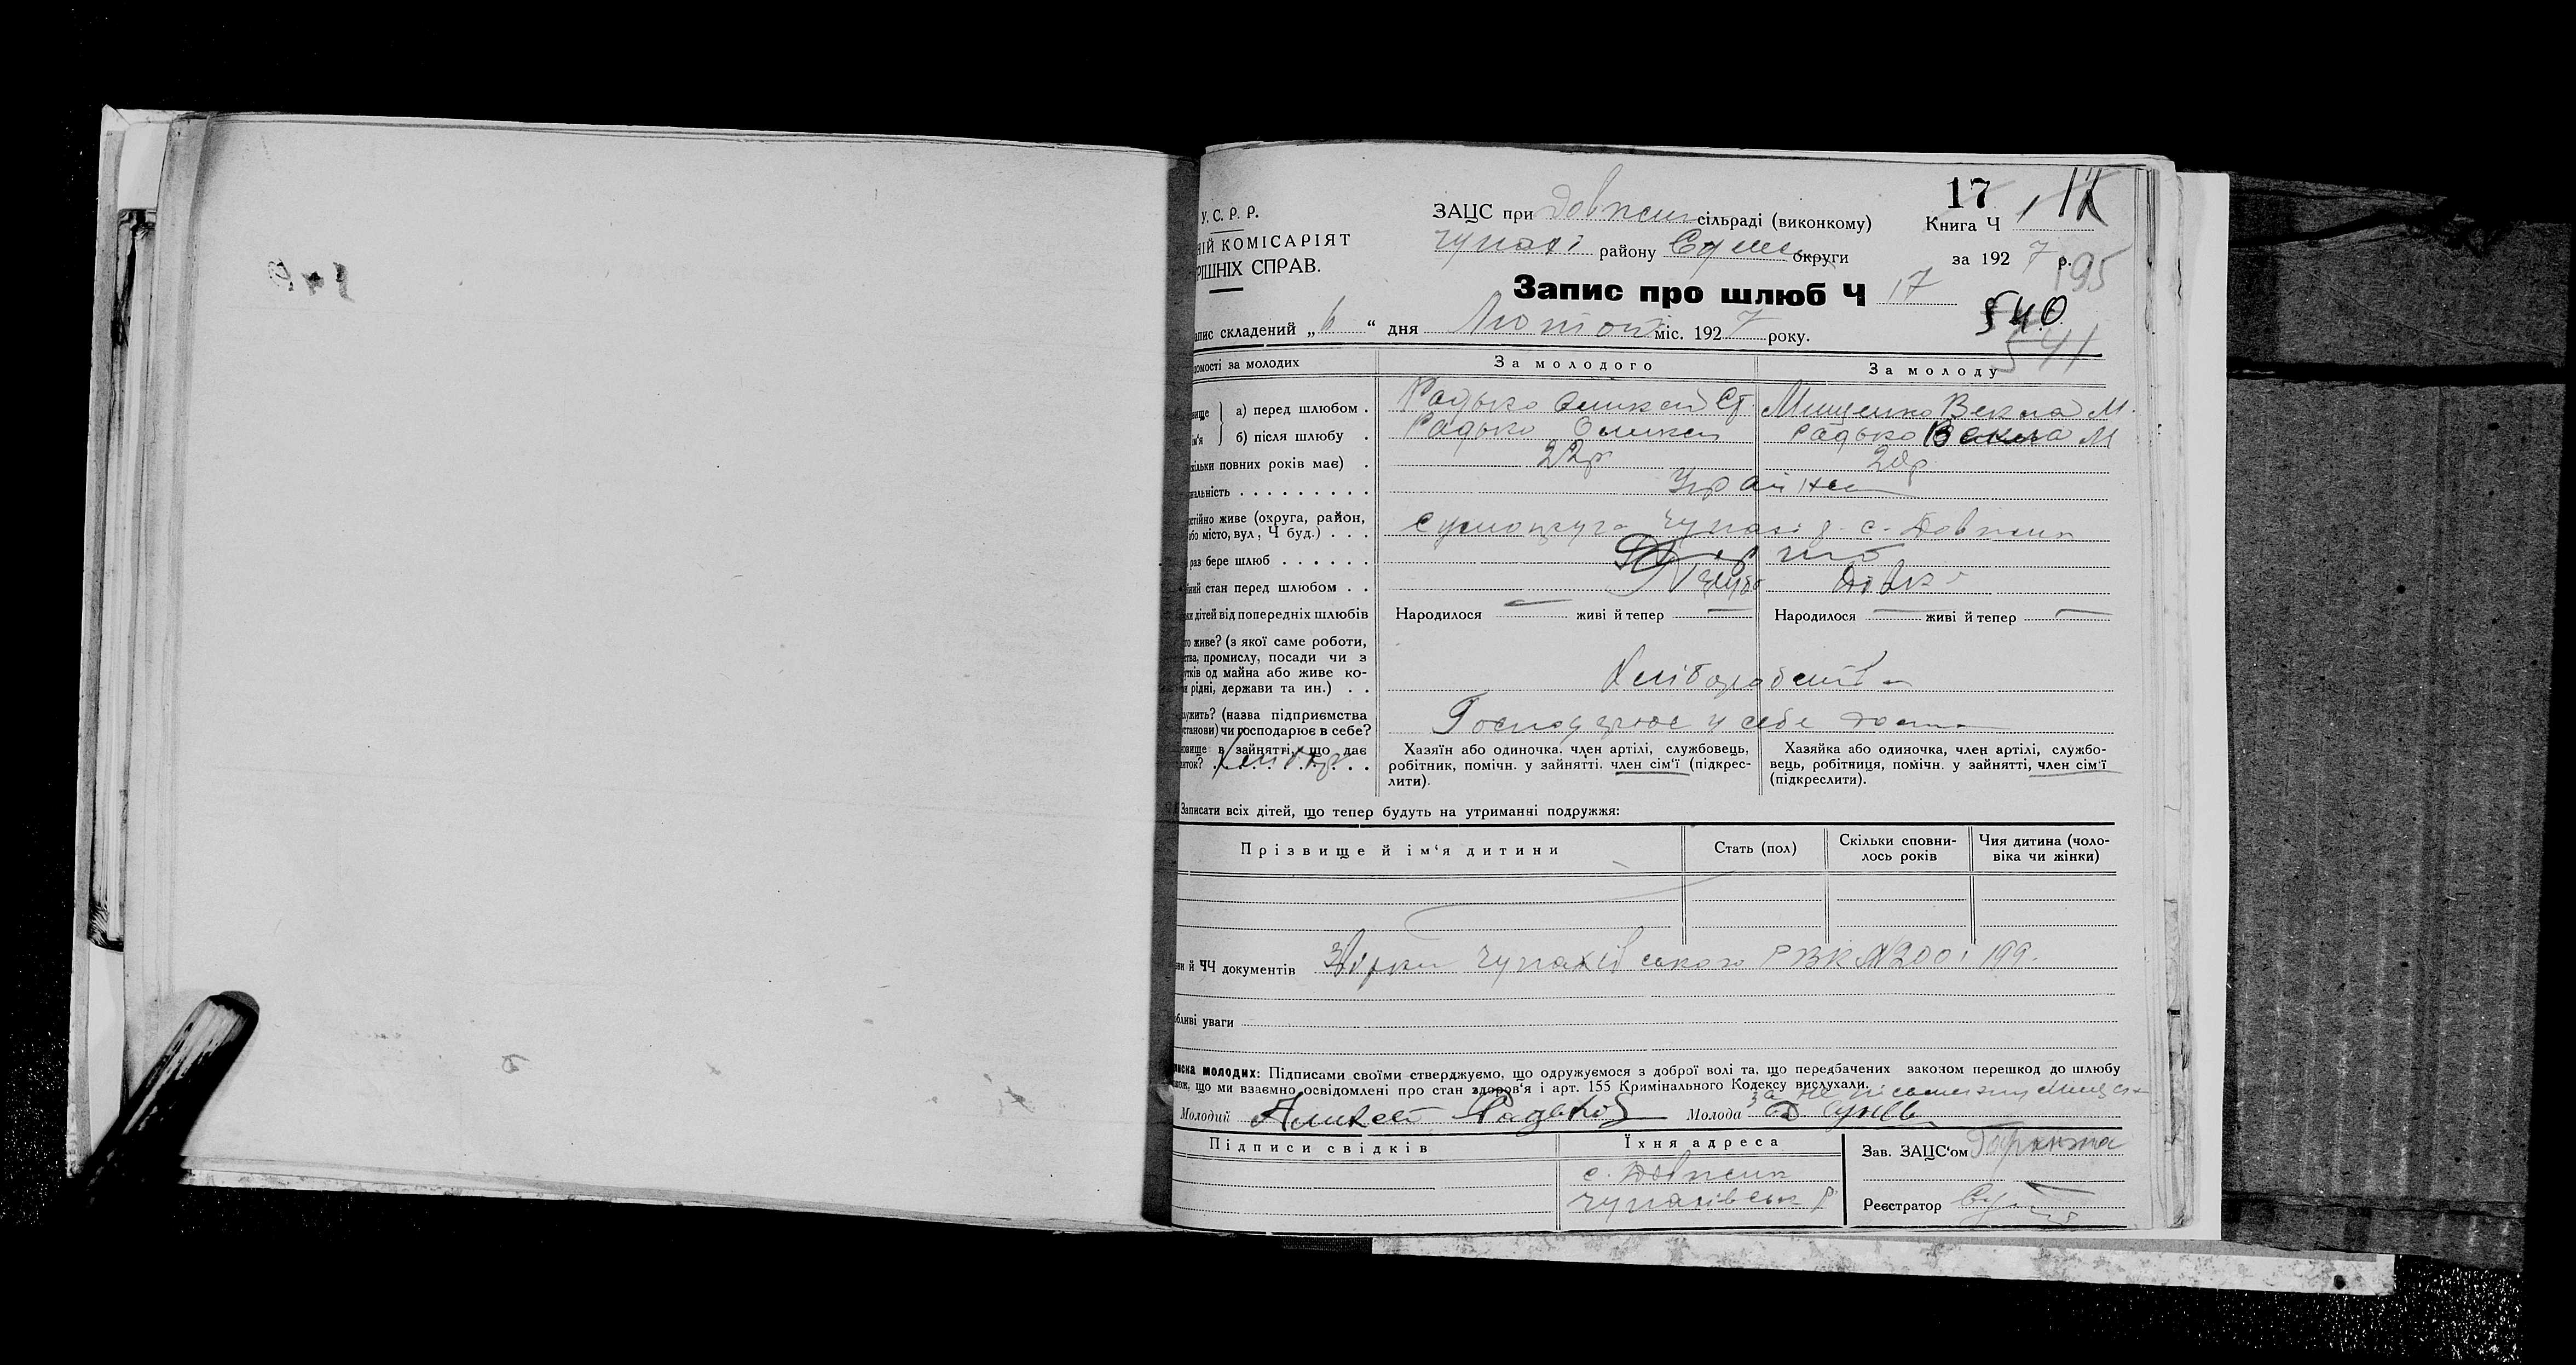 17
У. С. Р. Р.
ЗАЦС при Довжик сільраді (виконкому)
Книга Ч
НІЙ КОМІСАРІЯТ
Чупахі району Сум округи
за 1927 р.
195
РІШНІХ СПРАВ.
Запис про шлюб Ч 17
540
541
апис складений „6“ дня Лютого міс. 1927 року.
домості за молодих
За молодого
За молоду
а) перед шлюбом .
Радько Олексій Ст.
Мищенко Векла М.
б) після шлюбу .
Радько Олексій
Радько Векла М
кільки повних років має) .
22р
20р.
альність . . . . . . . . .
Україн
стійно живе (округа, район,
або місто, вул, Ч буд.) . . .
Сумокруга Чупахі р. с. Довжик
раз бере шлюб . . . . . .
ний стан перед шлюбом . .
Парубо
Дівка
ки дітей від попередніх шлюбів
Народилося — живі й тепер —
Народилося — живі й тепер —
го живе? (з якої саме роботи,
ства, промислу, посади чи з
утків од майна або живе ко-
и рідні, держави та ин.) . .
Хліборобств
лужить? (назва підприємства
станови) чи господарює в себе?
Господарює у себе
овище в зайнятті, що дає
иток? . . . Хлібор . . .
Хазяїн або одиночка, член артілі, службовець,
робітник, помічн. у зайнятті, член сім'ї (підкрес-
лити).
Хазяйка або одиночка, член артілі, службо-
вець, робітниця, помічн. у зайнятті, член сім'ї
(підкреслити).
Записати всіх дітей, що тепер будуть на утриманні подружжя:
Прізвище й ім'я дитини
Стать (пол)
Скільки сповни-
лось років
Чия дитина (чоло-
віка чи жінки)
ни й ЧЧ документів
Чупахівського РВК № 200 і 199.
бливі уваги
писка молодих: Підписами своїми стверджуємо, що одружуємося з доброї волі та, що передбачених законом перешкод до шлюбу
мож, що ми взаємно освідомлені про стан здоров'я і арт. 155 Кримінального Кодексу вислухали.
за не письменну
Молодий Алексей Радько
Молода
Підписи свідків
Їхня адреса
Зав. ЗАЦС'ом Гаранжа
с. Довжик
Чупахівськ р
Реєстратор